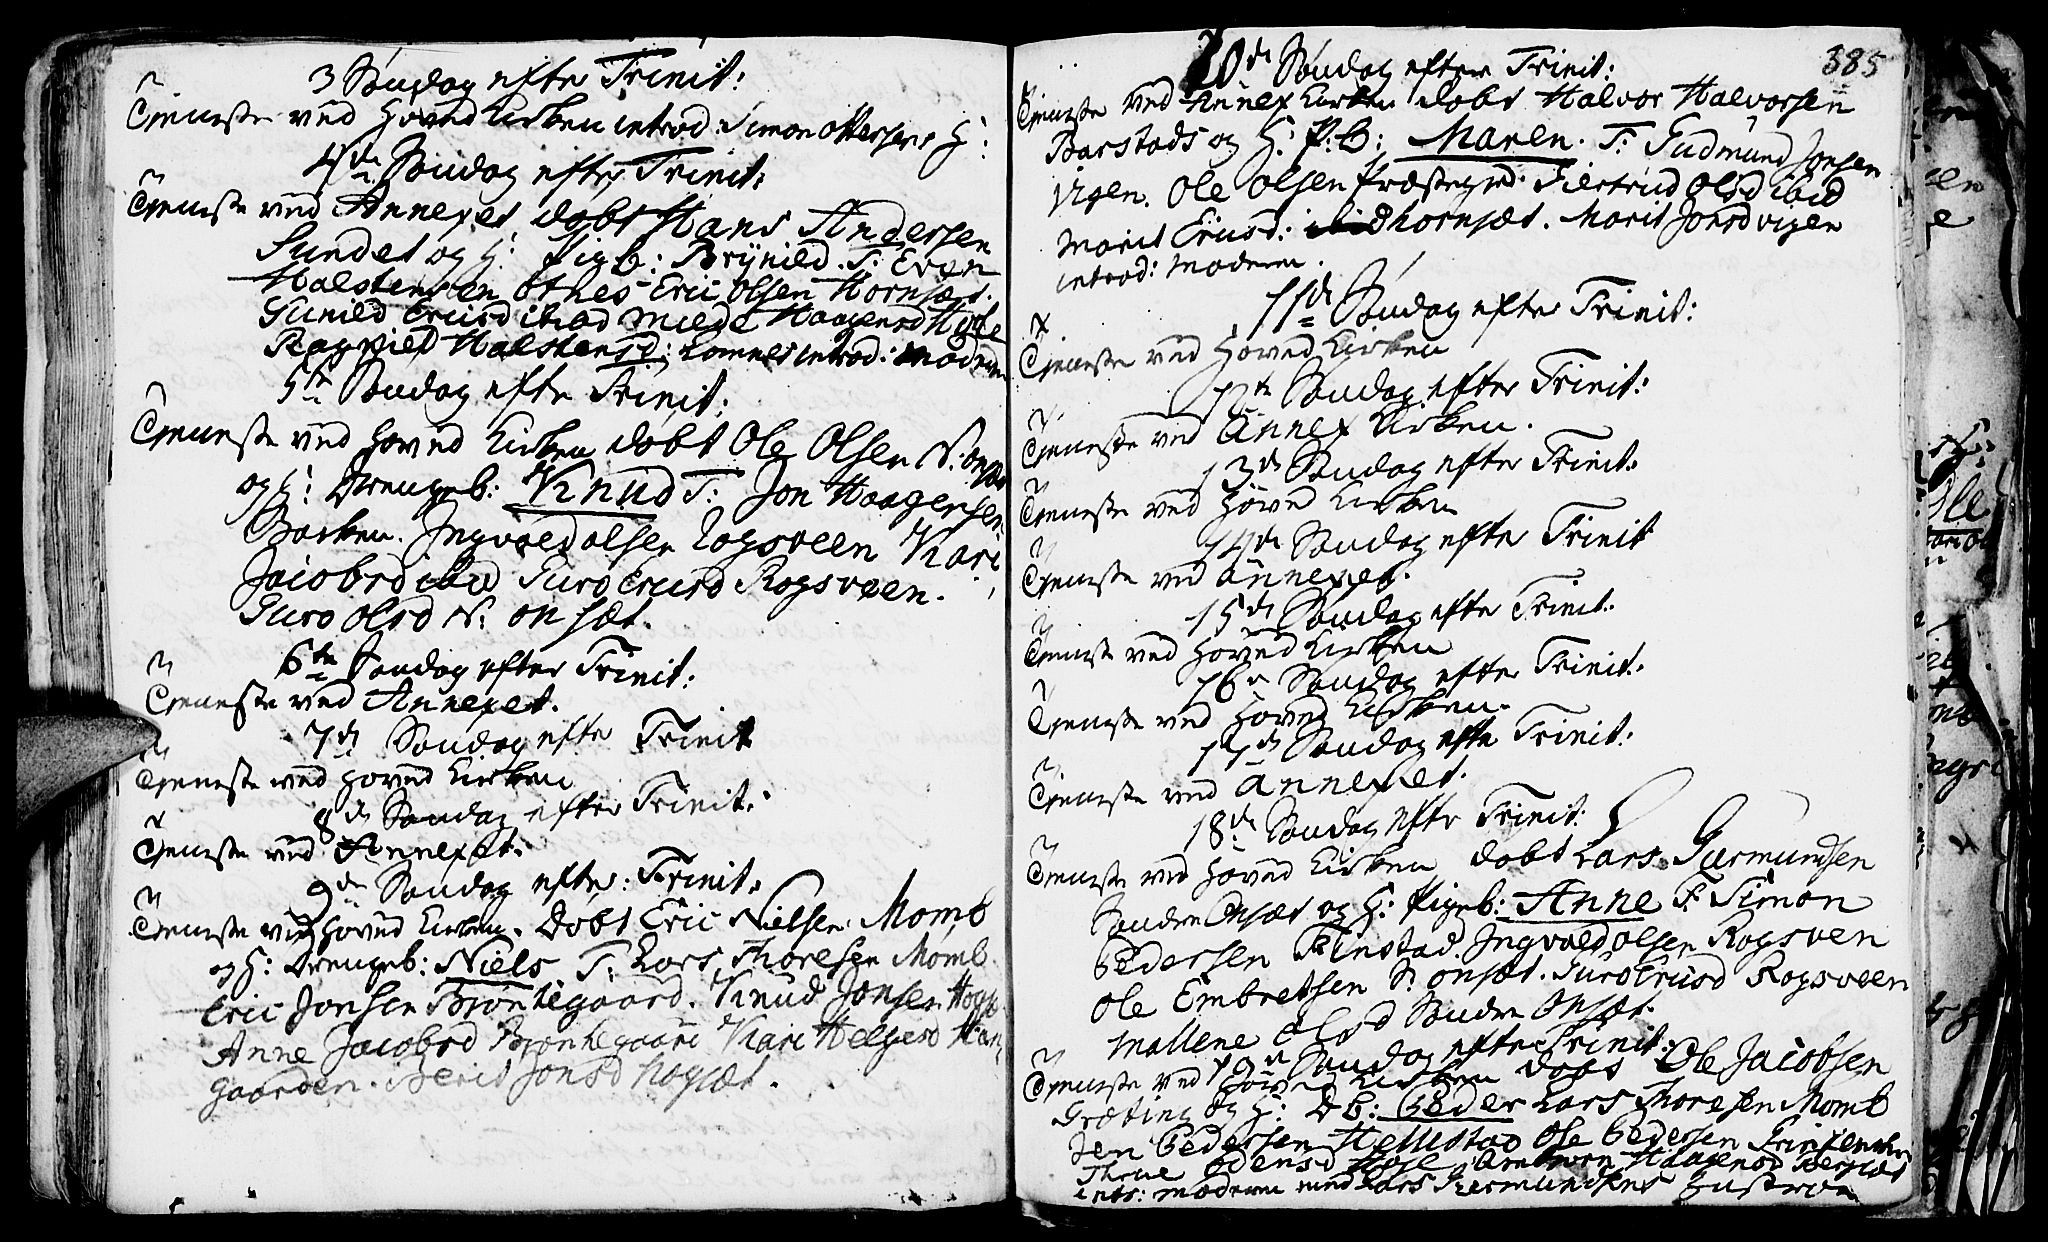 3 Søndag efter Trinit:
Tjeneste ved Hoved Kirken introd: Simon Ottersens H:
4de Søndag efter Trinit:
Tjeneste ved Annexet døbt Hans Andersen
Sundet og H: Pigb: Brynild T: Even
Halstensen Otnes Eric Olsen Hornsæt.
Gunild Ericsd ibid Haagensd
Ragnild Halstensd: introd: Moderen
5te Søndag efter Trinit:
Tjeneste ved Hoved Kirken døbt Ole Olsen N: Onsæt
og H: Drengeb: Knud T: Jon Haagensen
Backen. Ingvold Olsen Rogsveen Kari
Jacobsd ibid Guro Ericsd Rogsveen.
Guro Olsd N: Onsæt.
6te Søndag efter Trinit:
Tjeneste ved Annexet.
7de Søndag efter Trinit
Tjeneste ved Hoved Kirken
8de Søndag efter Trinit:
Tjeneste ved Annexet.
9de Søndag efter: Trinit:
Tjeneste ved Hoved Kirken. Døbt Eric Nielsen Momb
og H: Drengeb: Niels T: Lars Thoresen Momb.
Eric Jonsen Brontegaard. Knud Jonsen
Anne Jacobsd Brontegaard Kari Helgesd
gaarden. Berit Jonsd Hogsæt.
385
10de Søndag efter Trinit:
Tjeneste ved Annex Kirken døbt Halvor Halvorsen
Barstads og H: P:B: Maren. T: Gudmund Jonsen
Vigen. Ole Olsen Præstegrd: Giertrud Olsd ibid
Marit Ericsd: Hornsæt. Marit Jonsd Vigen
introd: Moderen.
11de Søndag efter Trinit:
Tjeneste ved Hoved Kirken
12te Søndag efter Trinit:
Tjeneste ved Annex Kirken.
13de Søndag efter Trinit:
Tjeneste ved Hoved Kirken
14de Søndag efter Trinit
Tjeneste ved Annexet.
15de Søndag efter Trinit:
Tjeneste ved Hoved Kirken
16de Søndag efter Trinit:
Tjeneste ved Hoved Kirken.
17de Søndag efter Trinit:
Tjeneste ved Annexet.
18de Søndag efter Trinit:
Tjeneste ved Hoved Kirken døbt Lars Giermundsen
Sønden Onsæt og H: Pigeb: Anne T: Simon
Pedersen Finstad. Ingvold Olsen Rogsveen
Ole Embretsen S: Onsæt. Guro Ericsd Rogsveen
Mallene Olsd Sønden Onsæt.
19de Søndag efter Trinit:
Tjeneste ved Hoved Kirken døbt Ole Jacobsen
Græting og H: Db: Peder Lars Thoresen Momb
Jen Pedersen Hellestad Ole Pedersen
Thrue Odensd Haagensd Bergset
intr: Moderen med Lars Giermundsens Hustrue